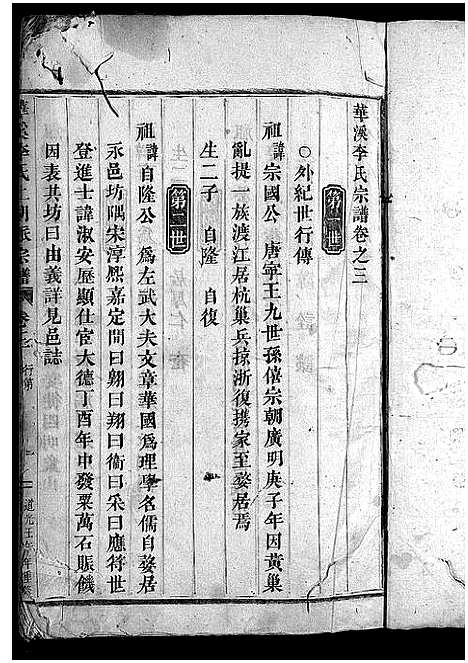 華溪李氏宗譜卷之三
○外紀世行傳
第一世
祖諱宗國公 唐寧王九世孫僖宗朝廣明庚子年因黃巢
亂提一族渡江居杭巢兵掠浙復携家至婺居焉
生二子 自隆 自復
第二世
祖諱自隆公 爲左武大夫文章華國爲理學名儒自婺居
永邑坊隅宋淳熙嘉定間曰翺曰翔曰衞曰采曰應符世
登進士諱淑安歷顯仕宦大德丁酉年申發粟萬石賑饑
因表其坊曰由義詳見邑誌
華溪李氏上朝派宗譜 卷之 行第 道光壬 年重修